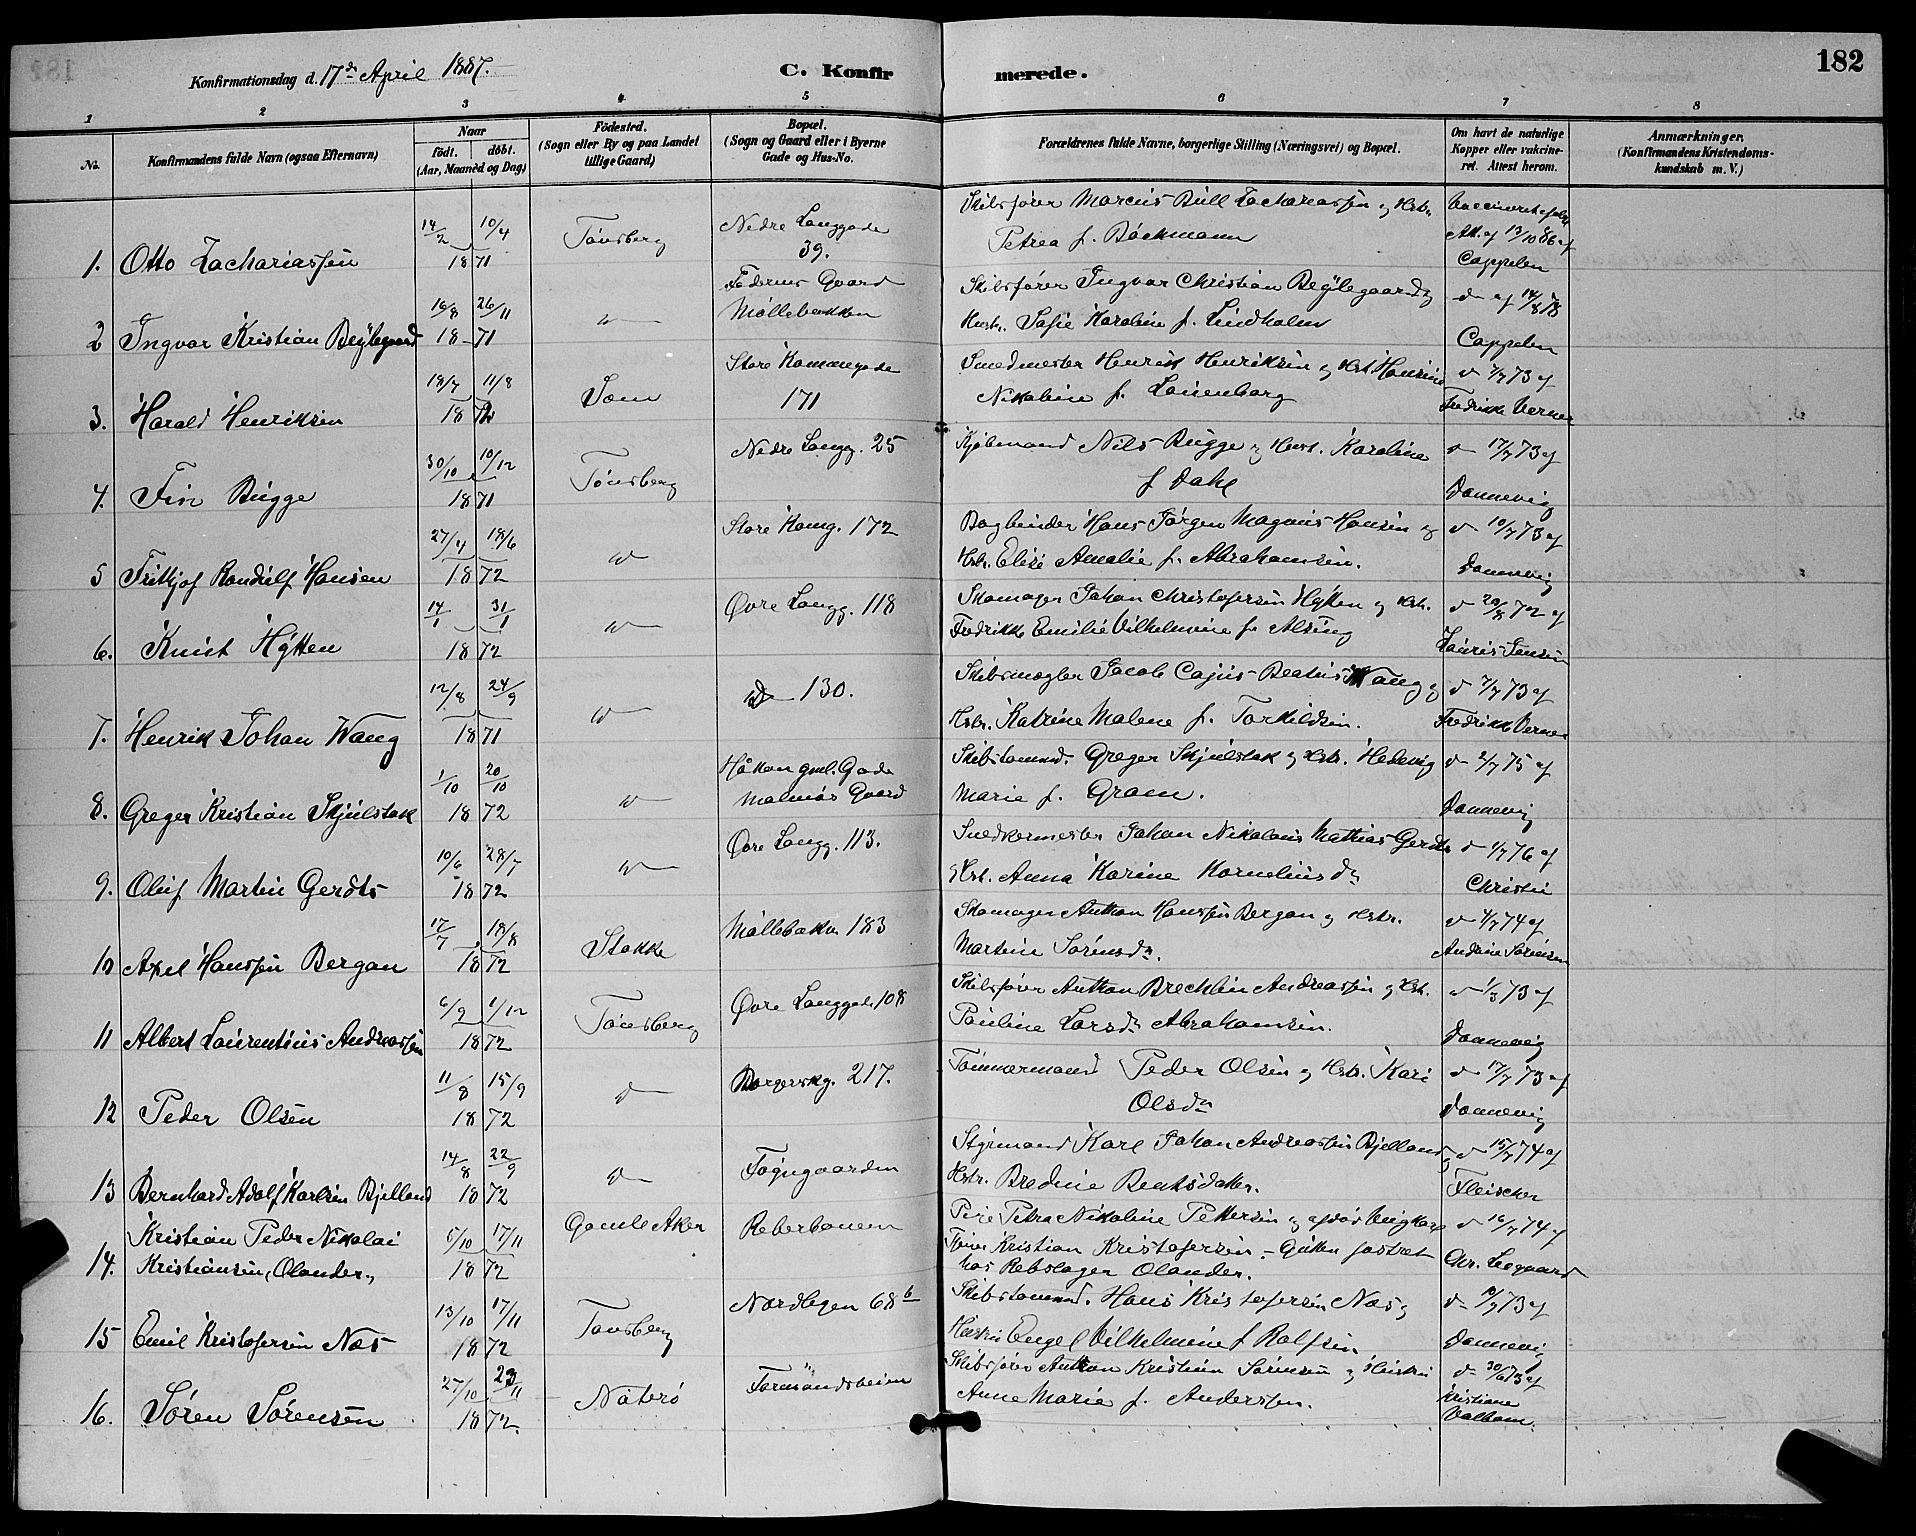 Konfirmationsdag d. 17de April 1887.
C. Konfirmerede.
182
1 2 3 4 5 6 7 8
No.
Konfirmandens fulde Navn (ogsaa Efternavn)
Naar
født. døbt.
(Aar, Maaned og Dag)
Födested.
(Sogn eller By og paa Landet
tillige Gaard)
Bopæl.
(Sogn og Gaard eller i Byerne
Gade og Hus-No.
Forældrenes fulde Navne, borgerlige Stilling (Næringsvei) og Bopæl.
Om havt de naturlige
Kopper eller vakcine-
ret. Attest herom.
Anmærkninger,
(Konfirmandens Kristendoms-
kundskab m. V.)
1. Otto Zachariassen 14/2 10/4 1871 Tönsberg Nedre Langgade 39. Skibsfører Marcus Bull Zachariassen og Hstr.
Petrea f. Böckmann Att. af 13/10 86 af Cappelen
2 Ingvar Kristian Bryllegaard 16/8 26/11 18-71 Møllebakken Skibsfører Ingvar Christian
Hustr. Sofie Karoline f. Lindholm d af 14/8 78 Cappelen
3. Harald Henriksen 18/7 11/8 1872 Sem Store 171 Smedmester Henrik Henriksen og Hst. Hansine
Nikoline f. Lauenborg d 7/7 73 af Fredrikke Verner
4. Fin Bugge 30/10 10/12 1871 Tönsberg Nedre Langg. 25 Kjöbmand Nils Bugge og Hust. Karoline
f Dahl d 17/7 73 af Dannevig
5 Frithjof Randulf Hansen 27/4 18/6 1872 d Store Kamg. 172 Bogbinder Hans Jörgen Magnus Hansen og
Hstr. Elise Amalie f. Abrahamsen. d 10/7 73 af Dannevig
6. Knut Hytten 14/1 31/1 1872 d Øvre Langg. 118 Skomager Johan Christofersen Hytten og Hstr.
Fredrikke Emilie Vilhelmine f. Alsing d 20/8 72 af Lauris Jensen
7. Henrik Johan Wang 12/8 24/9 1871 d d 130. Skibsmægler Jacob Cajus Beatus Wang og
Hstr. Katrine Malene f. Torkildsen. d 7/7 73 af Fredrikke Verner
8. Greger Kristian Skjulstak 1/10 20/10 1872 d Håkon gml. Gade
Malmøs Gaard Skibstømmd. Greger Skjulstak og Hstr. Hedevig
Marie f. Gram. d 2/7 75 af Dannevig
9. Oluf Martin Gerdts 10/6 28/7 1872 d Øvre Langg. 113. Snedkermester Johan Nikolaus Mathias Gerdts
og Hst. Anna Karine Korneliusdr d 1/7 76 af Christie
10 Axel Hanssen Bergan 17/7 18/8 1872 Stokke Møllebakn 183 Skomager Anthon Hanssen Bergan og Hstr.
Martine Sörensdr. d 4/7 74 af Andrine Sörensen
11 Albert Laurentius Andreassen 6/9 1/12 1872 Tönsberg Øvre Langgade 108 Skibsfører Anthon Brechlin Andreassen og Hst.
Pauline Larsdr Abrahamsen. d 1/3 73 af Dannevig
12 Peder Olsen 11/8 15/9 1872 d 217. Tömmermand Peder Olsen og Hstr. Kari
Olsdr d 17/7 73 af Dannevig
13 Bernhard Adolf Karlsen Bjelland 14/8 22/9 1872 d Föyngaarden Styrmand Karl Johan Andreassen Bjelland og
Hstr. Bredine Bentsdatter. d 15/7 74 af Fleischer
14. Kristian Peder Nikolai
Kristiansen, Olander, 5/10 17/11 1872 Gamle Aker Reberbanen Pige Petra Nikoline Pettersen og afdøde Ungkarl
Kristian Kristofersen. - Gutten fostret
hos Rebslager Olander. d 16/7 74 af Chr. Legaard
15 Emil Kristofersen Næs 13/10 17/11 1872 Tönsberg Nordbyen 68b Skibstømmd. Hans Kristofersen Næs og
Hustru Engel Vilhelmine f Rolfsen d 10/9 73 af Dannevig
16. Sören Sörensen 27/10 23/11 1872. Nøterö Skibsfører Anthon Kristian Sörensen og Hustru
Anne Marie f. Anderssen. d 30/6 73 af Kristiane